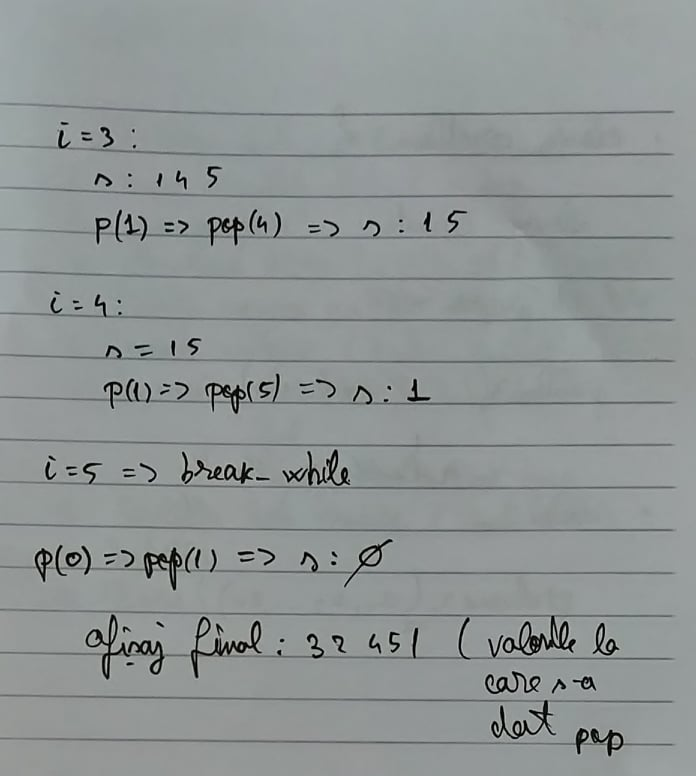 i = 3 :
s : 1 4 5
p(1) => pop(4) => s : 1 5
i = 4 :
s = 1 5
p(1) => pop(5) => s : 1
i = 5 => break_while
p(0) => pop(1) => s : ∅
afișaj final : 3 2 4 5 1 ( valorile la
care s-a
dat pop